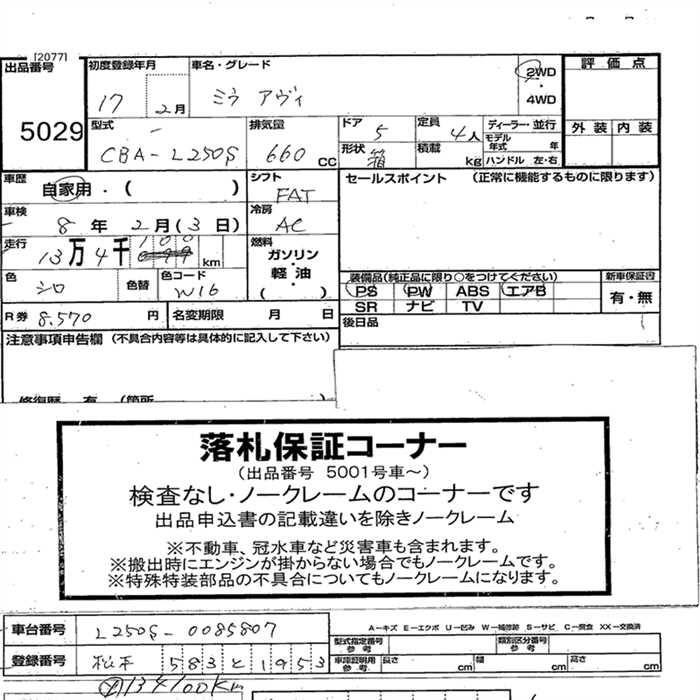 [2077]
出品番号 初度登録年月 車名・グレード 評価点
5029 17 2月 ミラ アヴィ 2WD
・
4WD
外装 内装
型式 排気量 ドア 5 定員 4人 ディーラー・並行
モデル年式 年
CBA-L250S 660cc 形状 箱 積載 kg ハンドル 左・右
車歴 自家用・( ) シフト FAT セールスポイント (正常に機能するものに限ります)
車検 8年 2月(3日) 冷房 AC
走行 13万4千100km 燃料 ガソリン・軽油・( )
色 シロ 色替 色コード W16
装備品(純正品に限り○をつけてください) 新車保証書
PS PW ABS エアB 有・無
SR ナビ TV
R券 8.570円 名変期限 月 日 後日品
注意事項申告欄 (不具合内容等は具体的に記入して下さい)
修復歴 有 (箇所
落札保証コーナー
(出品番号 5001号車~)
検査なし・ノークレームのコーナーです
出品申込書の記載違いを除きノークレーム
※不動車、冠水車など災害車も含まれます。
※搬出時にエンジンが掛からない場合でもノークレームです。
※特殊特装部品の不具合についてもノークレームになります。
A-キズ E-エクボ U-凹み W-補修跡 S-サビ C-腐食 XX-交換済
車台番号 L250S-0085807 型式指定番号 参考 類別区分番号 参考
登録番号 松本 583 と 1953 車庫証明用 参考 長さ cm 幅 cm 高さ cm
134100Km